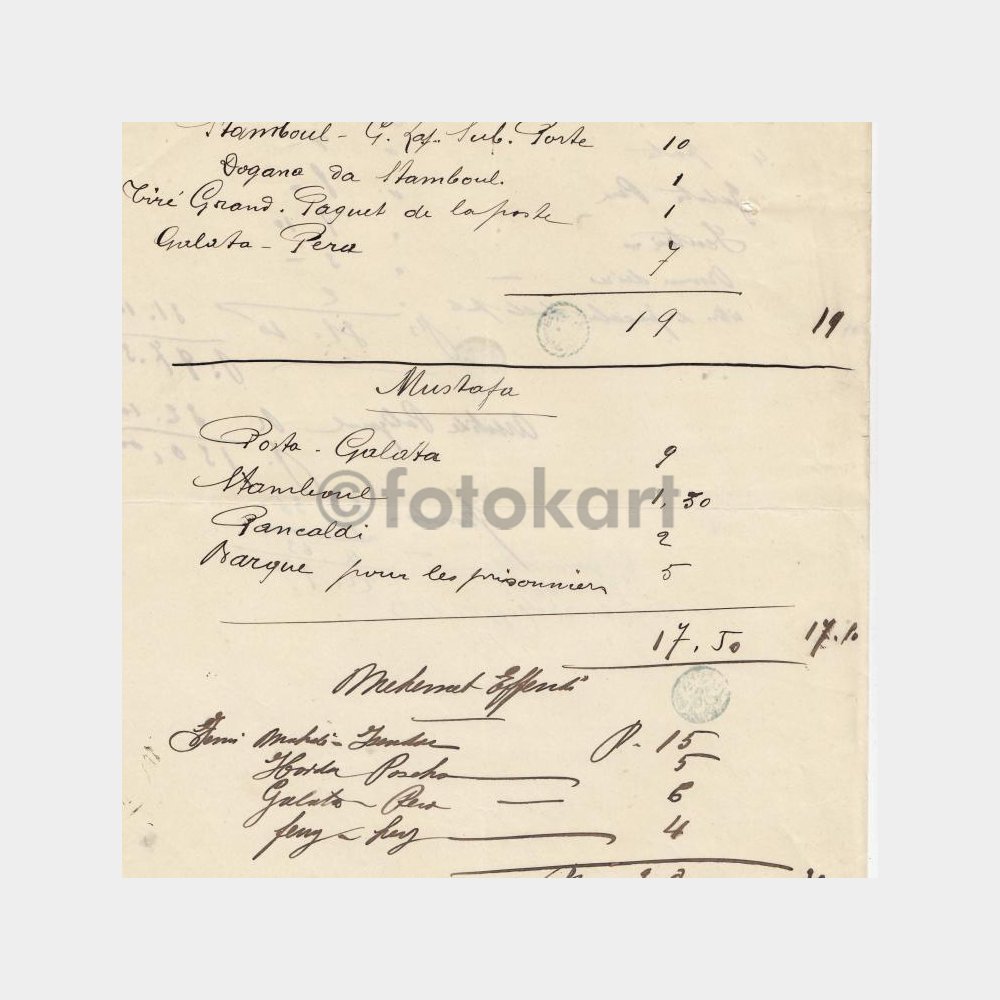 Stamboul - G. Sub. Porte 10
Dogana da Stamboul. 1
Tiré Grand. Paquet de la poste 1
Galata - Pera 7
19 19
Mustafa
Posta - Galata 9
Stamboul 1,50
Pancaldi 2
Barque pour les prisonniers 5
17,50 17.10
©fotokart
Mehemet Effendi
P. 15
Haidar Pascha 5
Galata - Pera 6
4